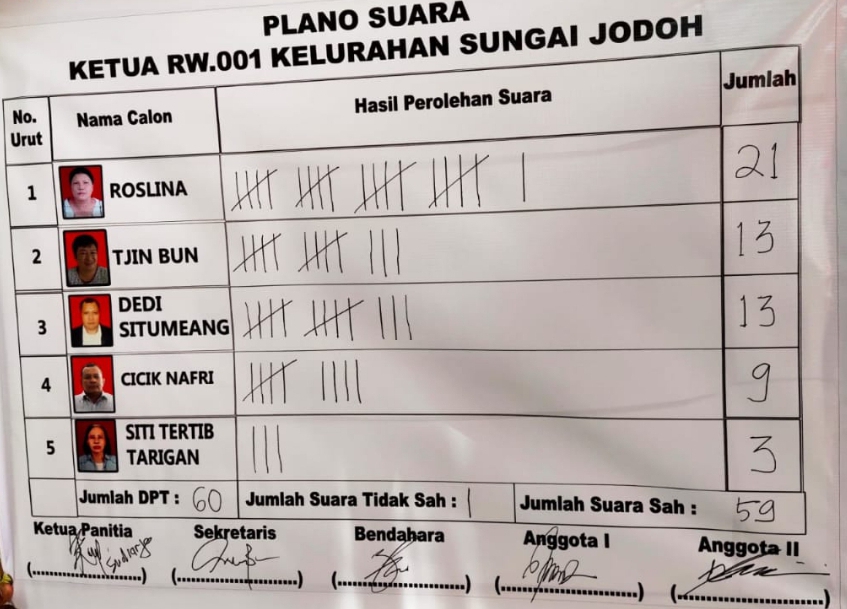 PLANO SUARA
KETUA RW.001 KELURAHAN SUNGAI JODOH
No. Urut Nama Calon Hasil Perolehan Suara Jumlah
1 ROSLINA 21
2 TJIN BUN 13
3 DEDI SITUMEANG 13
4 CICIK NAFRI 9
5 SITI TERTIB TARIGAN 3
Jumlah DPT : 60 Jumlah Suara Tidak Sah : 1 Jumlah Suara Sah : 59
Ketua Panitia Sekretaris Bendahara Anggota I Anggota II
(....................) (....................) (....................) (....................) (....................)